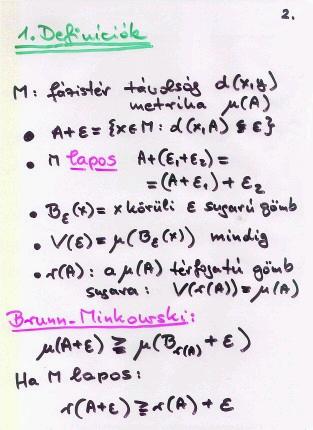 2.
1. Definíciók
M: fázistér távolság d(x,y)
metrika μ(A)
• A+ε = {x∈M: d(x,A) ≦ ε}
• M lapos A+(ε₁+ε₂) =
= (A+ε₁) + ε₂
• B_ε(x) = x körüli ε sugarú gömb
• V(ε) = μ(B_ε(x)) mindig
• r(A): a μ(A) térfogatú gömb
sugara: V(r(A)) = μ(A)
Brunn-Minkowski:
μ(A+ε) ≧ μ(B_r(A) + ε)
Ha M lapos:
r(A+ε) ≧ r(A) + ε